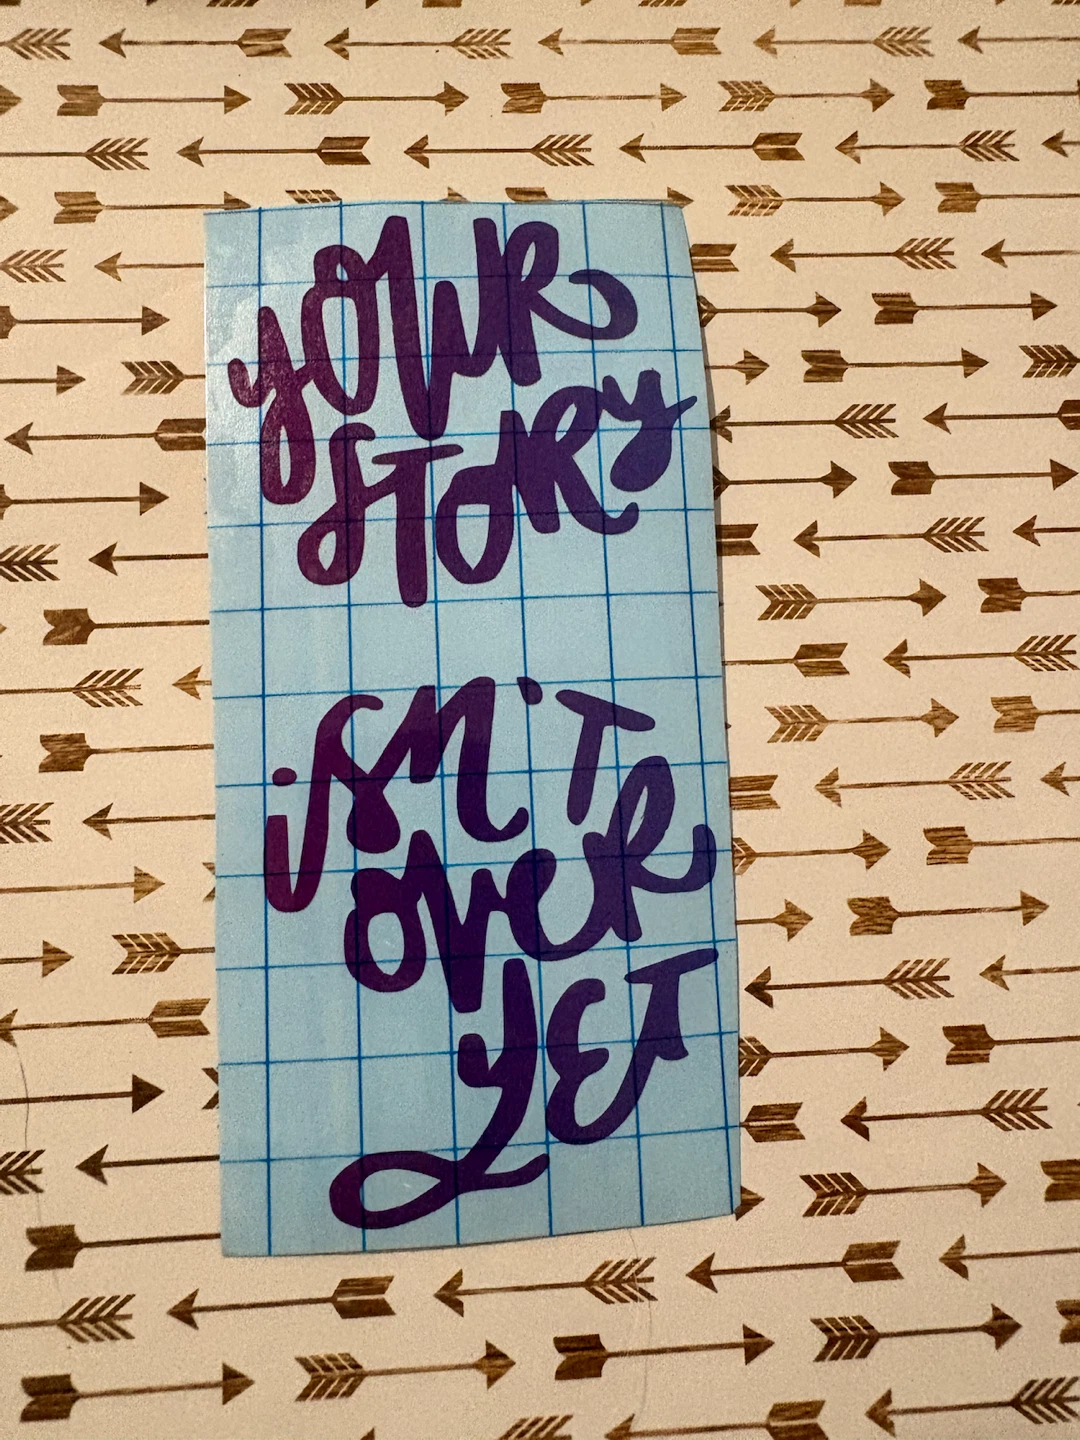 yOUR
STORy
isn'T
OVeR
yET